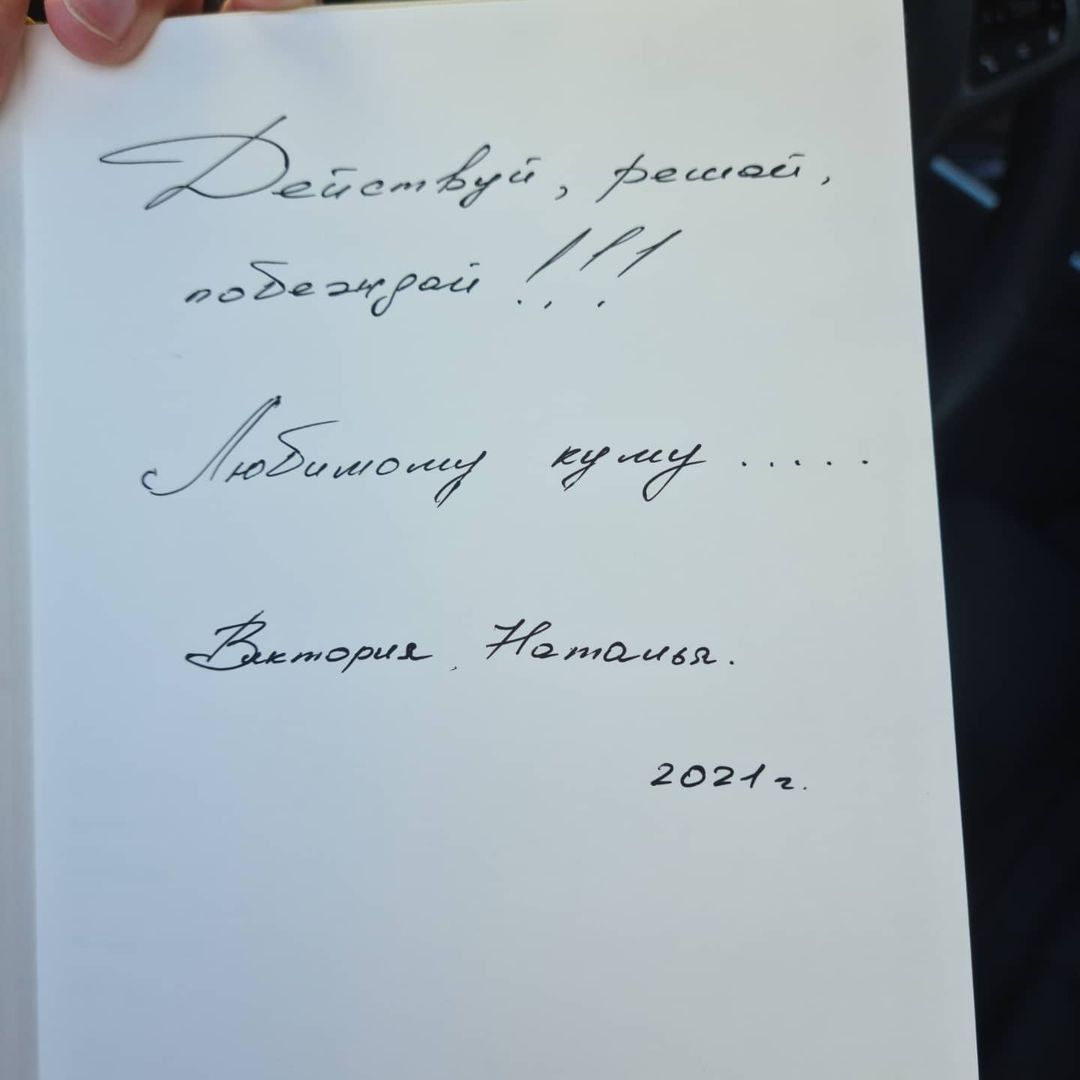 Действуй, решай,
побеждай !!!
Любимому куму .....
Виктория, Наталья.
2021 г.